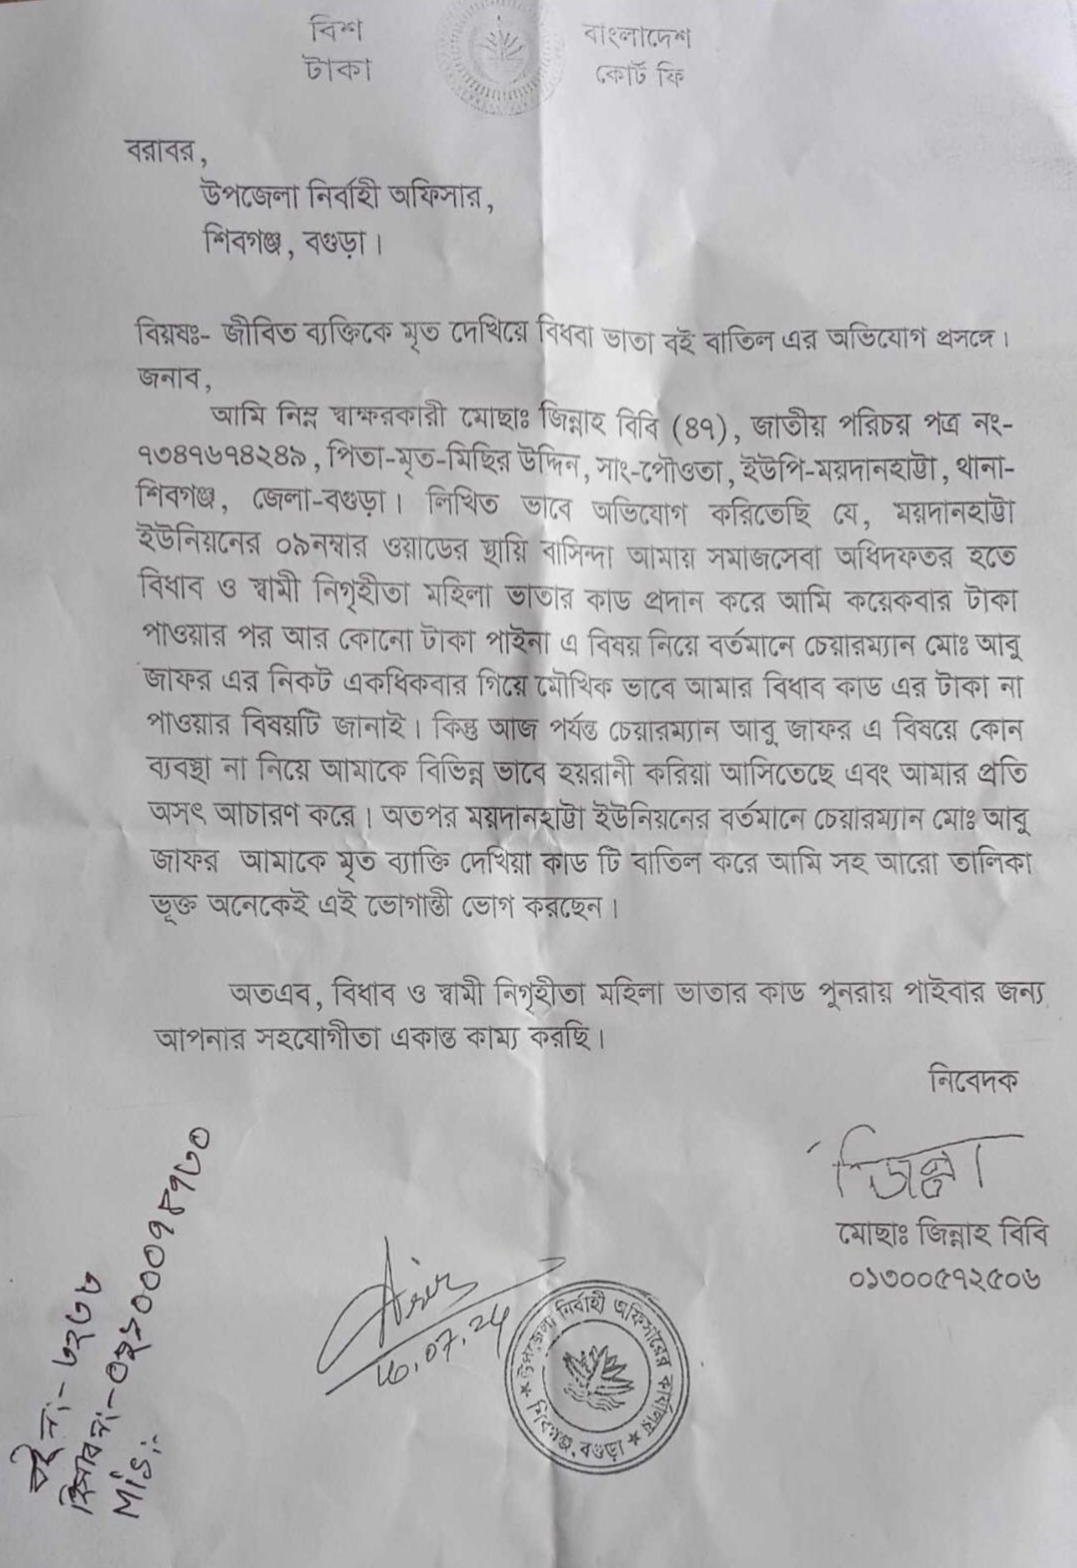 বিশ
টাকা
বাংলাদেশ
কোর্ট ফি
বরাবর,
উপজেলা নির্বাহী অফিসার,
শিবগঞ্জ, বগুড়া।
বিয়ষঃ- জীবিত ব্যক্তিকে মৃত দেখিয়ে বিধবা ভাতা বই বাতিল এর অভিযোগ প্রসঙ্গে।
জনাব,
আমি নিম্ন স্বাক্ষরকারী মোছাঃ জিন্নাহ বিবি (৪৭), জাতীয় পরিচয় পত্র নং-
৭৩৪৭৬৭৪২৪৯, পিতা-মৃত-মিছির উদ্দিন, সাং-পৌওতা, ইউপি-ময়দানহাট্টা, থানা-
শিবগঞ্জ, জেলা-বগুড়া। লিখিত ভাবে অভিযোগ করিতেছি যে, ময়দানহাট্টা
ইউনিয়নের ০৯নম্বার ওয়াডের স্থায়ি বাসিন্দা আমায় সমাজসেবা অধিদফতর হতে
বিধাব ও স্বামী নিগৃহীতা মহিলা ভাতার কাড প্রদান করে আমি কয়েকবার টাকা
পাওয়ার পর আর কোনো টাকা পাইনা এ বিষয় নিয়ে বর্তমানে চেয়ারম্যান মোঃ আবু
জাফর এর নিকট একধিকবার গিয়ে মৌখিক ভাবে আমার বিধাব কাড এর টাকা না
পাওয়ার বিষয়টি জানাই। কিন্তু আজ পর্যন্ত চেয়ারম্যান আবু জাফর এ বিষয়ে কোন
ব্যবস্থা না নিয়ে আমাকে বিভিন্ন ভাবে হয়রানী করিয়া আসিতেছে এবং আমার প্রতি
অসৎ আচারণ করে। অতপর ময়দানহাট্টা ইউনিয়নের বর্তমানে চেয়ারম্যান মোঃ আবু
জাফর আমাকে মৃত ব্যাক্তি দেখিয়া কাড টি বাতিল করে আমি সহ আরো তালিকা
ভূক্ত অনেকেই এই ভোগান্তী ভোগ করছেন।
অতএব, বিধাব ও স্বামী নিগৃহীতা মহিলা ভাতার কাড পূনরায় পাইবার জন্য
আপনার সহযোগীতা একান্ত কাম্য করছি।
নিবেদক
জিন্না
মোছাঃ জিন্নাহ বিবি
০১৩০০৫৭২৫০৬
16.07.24
উপজেলা নির্বাহী অফিসারের কার্যালয়
শিবগঞ্জ, বগুড়া
বই নং:-
হিসাব নং:-
Mis:-